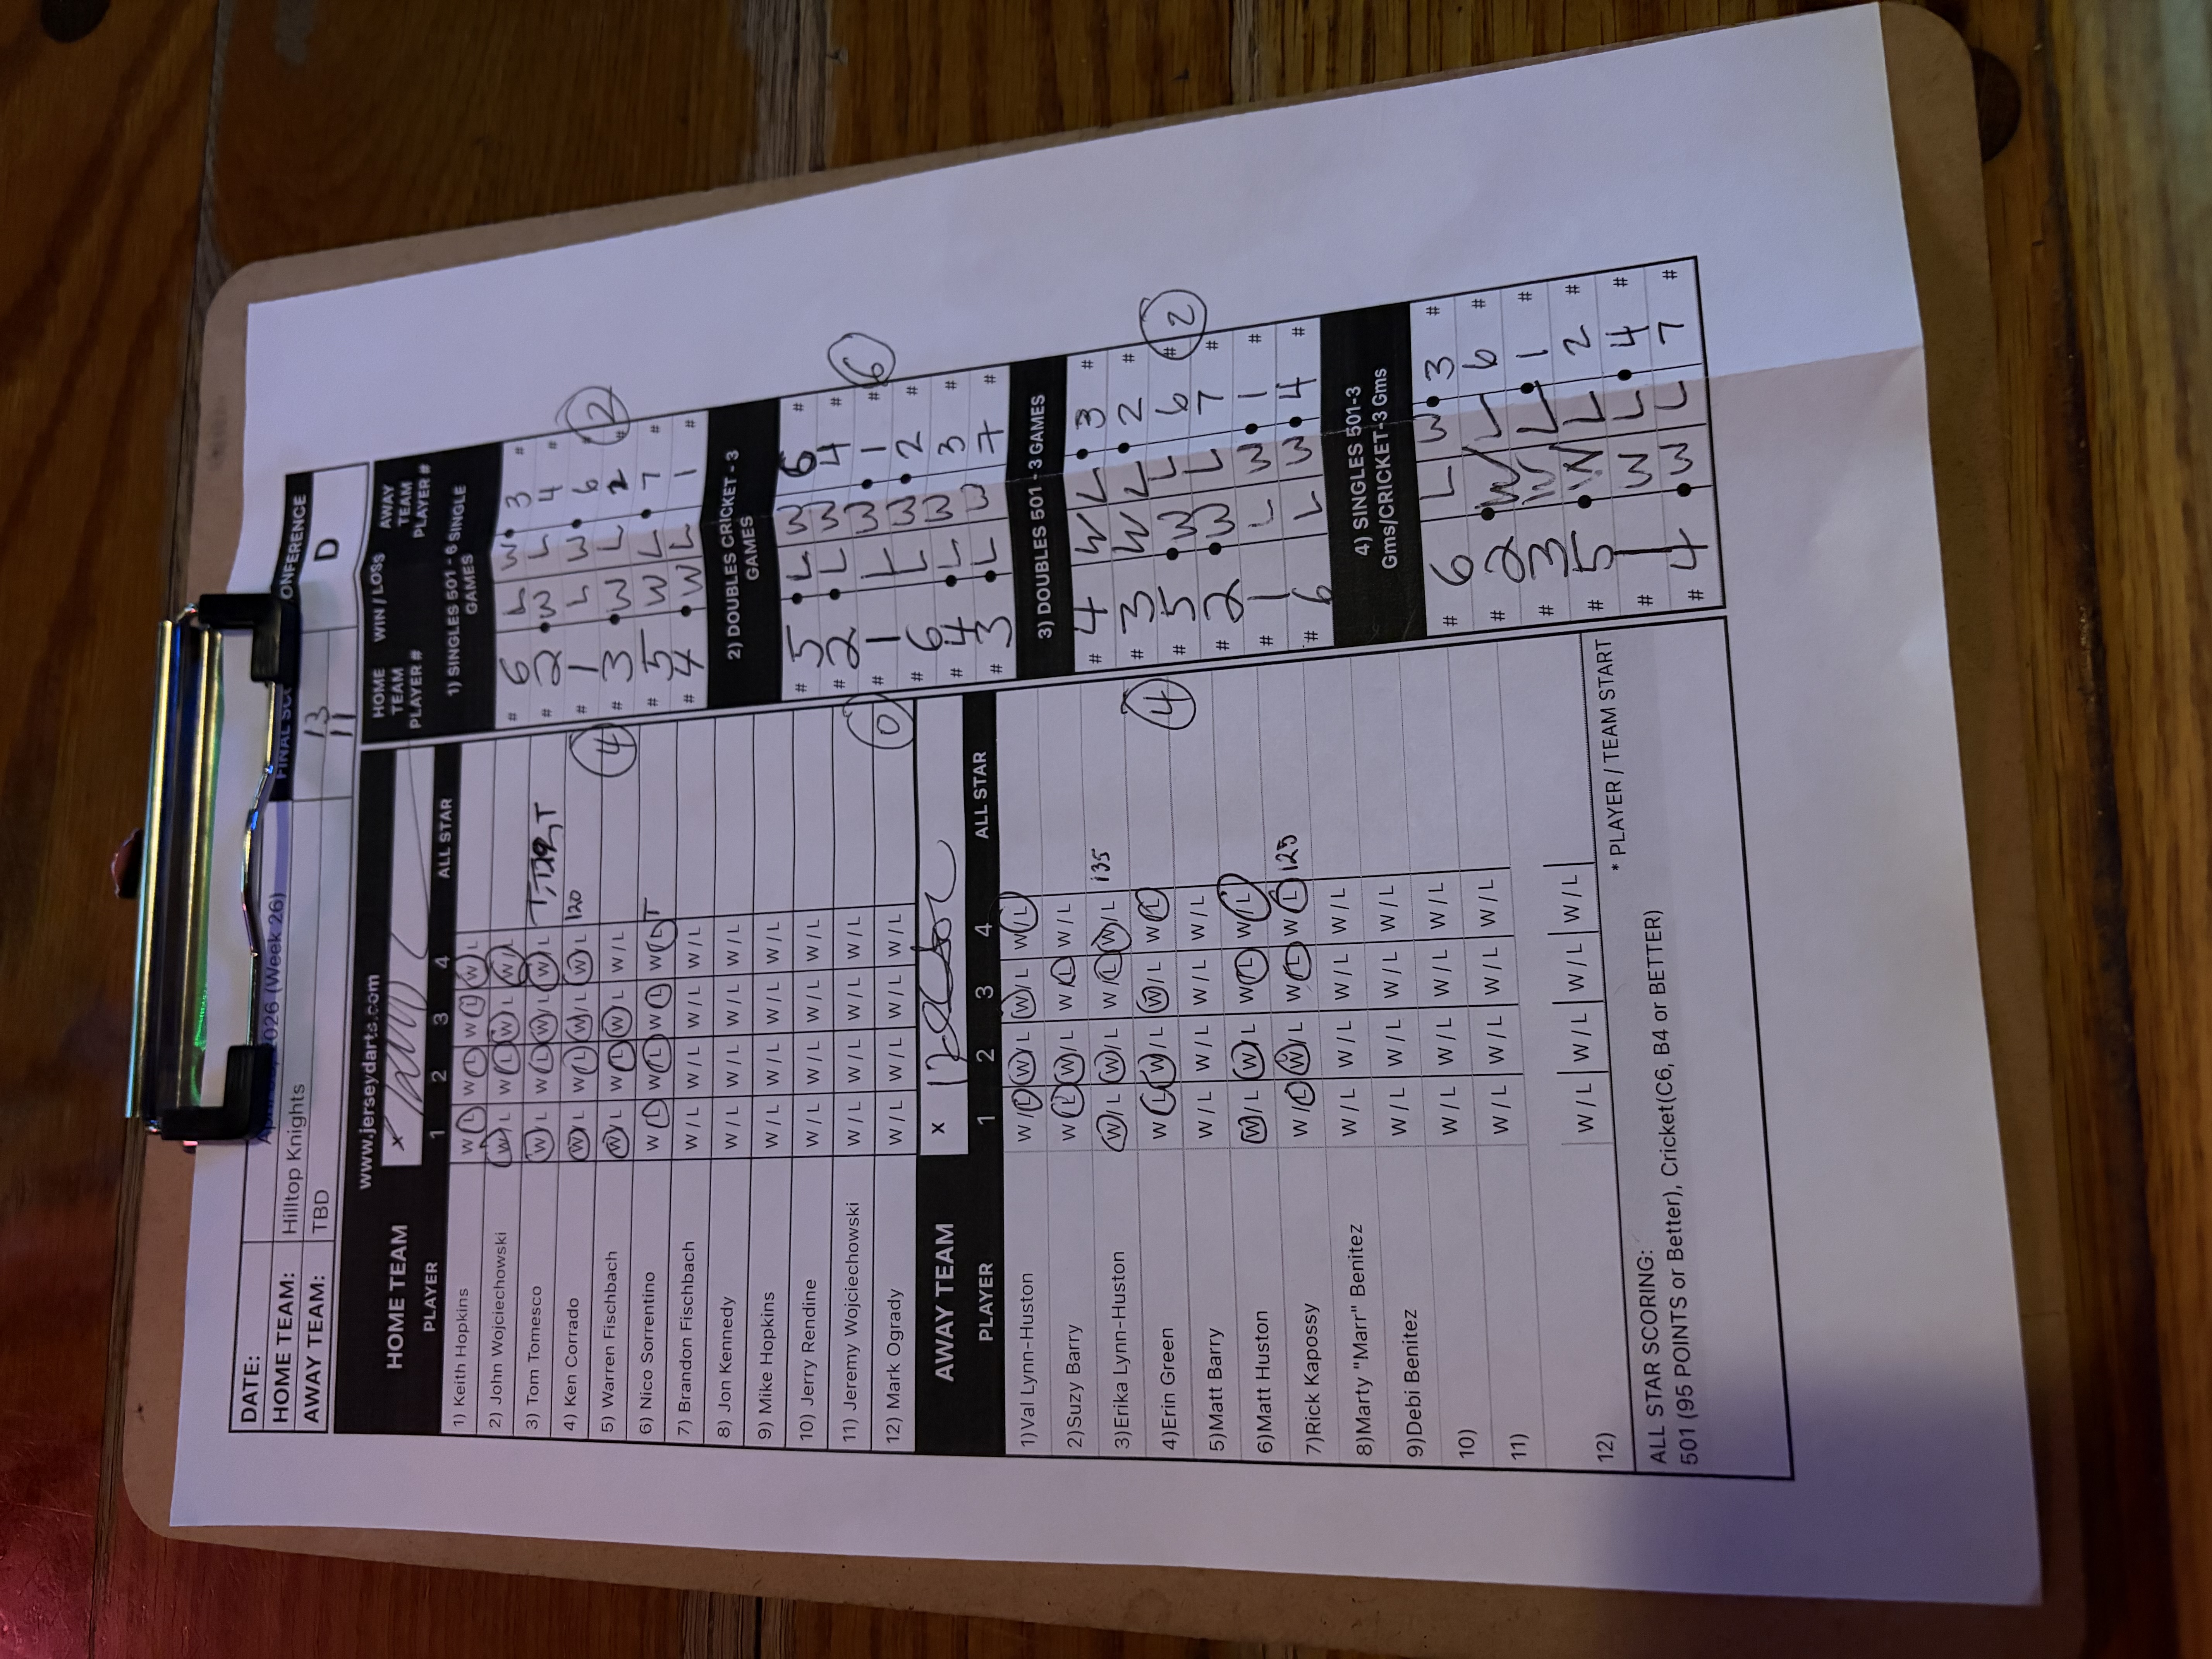 DATE: 2026 (Week 26) FINAL SC ONFERENCE
HOME TEAM: Hilltop Knights 13 D
AWAY TEAM: TBD 11
www.jerseydarts.com
HOME TEAM x
PLAYER 1 2 3 4 ALL STAR
1) Keith Hopkins W / L W / L W / L W / L
2) John Wojciechowski W / L W / L W / L W / L
3) Tom Tomesco W / L W / L W / L W / L
4) Ken Corrado W / L W / L W / L W / L 120
5) Warren Fischbach W / L W / L W / L W / L
6) Nico Sorrentino W / L W / L W / L W / L T
7) Brandon Fischbach W / L W / L W / L W / L
8) Jon Kennedy W / L W / L W / L W / L
9) Mike Hopkins W / L W / L W / L W / L
10) Jerry Rendine W / L W / L W / L W / L
11) Jeremy Wojciechowski W / L W / L W / L W / L
12) Mark Ogrady W / L W / L W / L W / L
4
0
AWAY TEAM x
PLAYER 1 2 3 4 ALL STAR
1)Val Lynn-Huston W / L W / L W / L W / L
2)Suzy Barry W / L W / L W / L W / L
3)Erika Lynn-Huston W / L W / L W / L W / L 135
4)Erin Green W / L W / L W / L W / L
5)Matt Barry W / L W / L W / L W / L
6)Matt Huston W / L W / L W / L W / L
7)Rick Kapossy W / L W / L W / L W / L 125
8)Marty "Marr" Benitez W / L W / L W / L W / L
9)Debi Benitez W / L W / L W / L W / L
10) W / L W / L W / L W / L
11) W / L W / L W / L W / L
12) W / L W / L W / L W / L
4
* PLAYER / TEAM START
ALL STAR SCORING:
501 (95 POINTS or Better), Cricket(C6, B4 or BETTER)
HOME TEAM PLAYER # WIN / LOSS AWAY TEAM PLAYER #
1) SINGLES 501 - 6 SINGLE GAMES
# 6 L W 3 #
# 2 W L 4 #
# 1 L W 6 #
# 3 W L 2 #
# 5 W L 7 #
# 4 W L 1 #
2
2) DOUBLES CRICKET - 3 GAMES
# 5 L W 6 #
# 2 L W 4 #
# 1 L W 1 #
# 6 L W 2 #
# 4 L W 3 #
# 3 L W 7 #
6
3) DOUBLES 501 - 3 GAMES
# 4 W L 3 #
# 3 W L 2 #
# 5 W L 6 #
# 2 W L 7 #
# 1 L W 1 #
# 6 L W 4 #
2
4) SINGLES 501-3 Gms/CRICKET-3 Gms
# 6 L W 3 #
# 2 W L 6 #
# 3 W L 1 #
# 5 W L 2 #
# 1 W L 4 #
# 4 W L 7 #